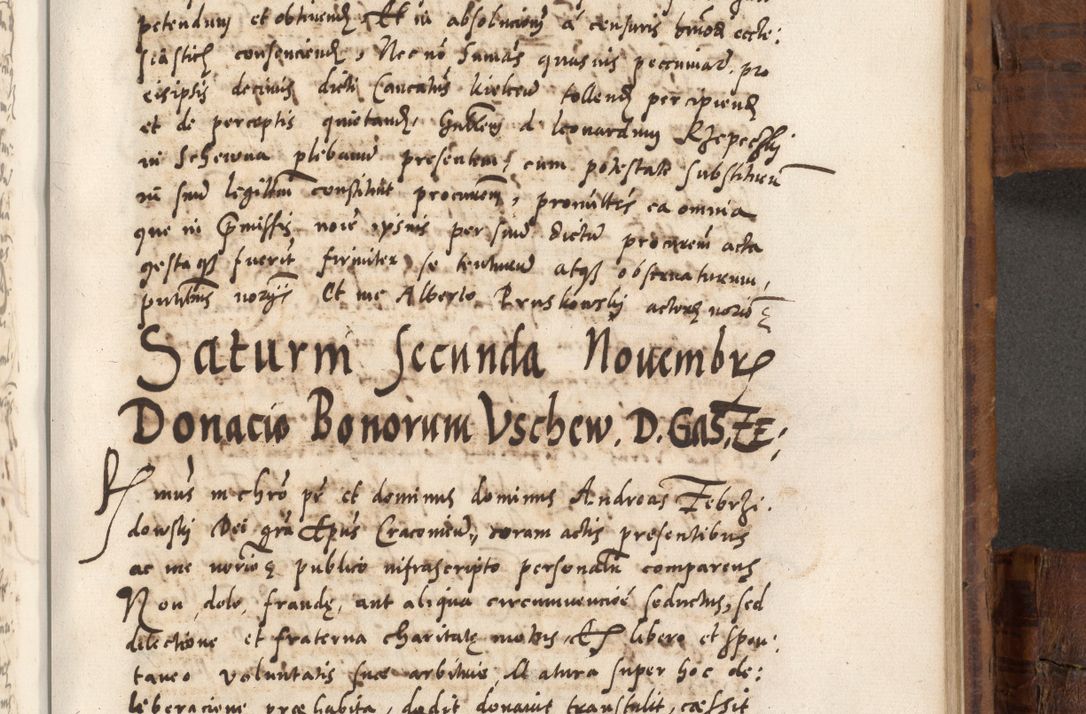 petendum et obtinend Et in absolucionem a censuris huiod eccle:
siastich consenciend, Nec no sumas quasuis peccuniar. pro
eisipsis decimis dicti Caucatus kielcen tollend percipiend
et de perceptis quietand, d leonardum Rzepeczkij
in Schewna plebanu presentem, cum potestate substituen
in suu legitim constituit procurem, promittes ea omnia
que in pmissis noie ipsius per suu dictu procurem acta
gestaqz fuerit firmiter se tenturu atqz obseruaturum,
pntibus Et me Alberto Pruskowskij actor notrio
Saturni secunda Nouembr
Donacio Bonorum Vschew. D. Gas, TE:
R mus in chro pr et dominus dominus Andreas Zebrzi:
dowskij Dei gra Epus Cracouien, coram actis presentibus
ac me notrioqz publico infrascripto personalr comparens
Non dolo, fraude, aut aliqua circumuencioe seductus, sed
dilectione et fraterna charitate motus, Ex libero et spon:
taneo voluntatis suae arbitrio, Matura super hoc de:
liberacione prae habita, dedit donauit transtulit, caessit